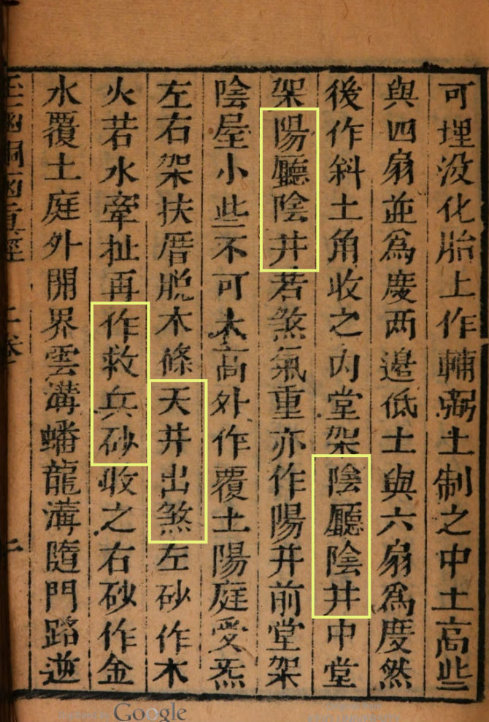 可埋没化胎上作輔弼土制之中土高些
與四扇並為度两邉低土與六扇為度然
後作斜土角收之内堂架陰廳陰井中堂
架陽廳陰井若煞氣重亦作陽井前堂架
陰屋小些不可太高外作覆土陽庭愛炁
左右架扶厝脱木條天井出煞左砂作木
火若水牽扯再作救兵砂收之右砂作金
水覆土庭外開界雲溝蟠龍溝随門路逆
二卷
Google